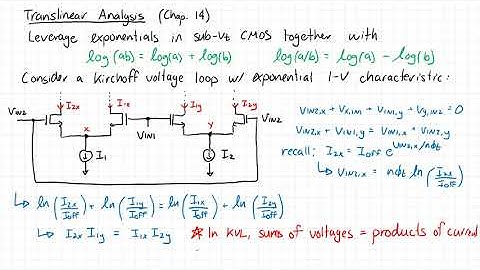 Translinear Analysis (Chap. 14)
Leverage exponentials in sub-Vt CMOS together with
log(ab) = log(a) + log(b) log(a/b) = log(a) - log(b)
Consider a Kirchoff voltage loop w/ exponential I-V characteristic:
I2x I1x I1y I2y
VIN2 VIN1 VIN2
x y
I1 I2
VIN2,x + Vx,IN1 + VIN1,y + Vy,IN2 = 0
VIN2,x + VIN1,y = VIN1,x + VIN2,y
recall: I2x = Ioff e^VIN2,x/nφt
↳ VIN2,x = nφt ln(I2x/Ioff)
↳ ln(I2x/Ioff) + ln(I1y/Ioff) = ln(I1x/Ioff) + ln(I2y/Ioff)
↳ I2x I1y = I1x I2y * In KVL, sums of voltages = products of current